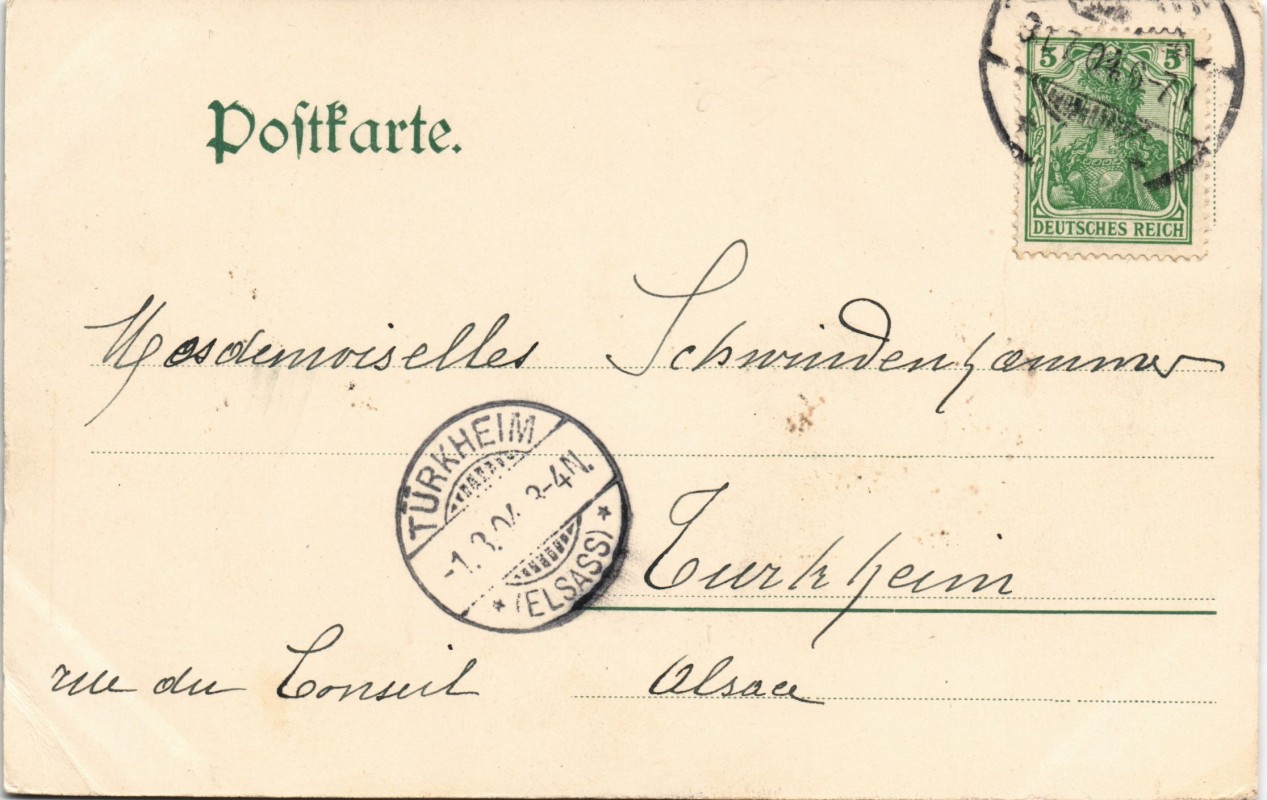 Postkarte.
5 5
DEUTSCHES REICH
Mesdemoiselles Schwindenhammer
TÜRKHEIM
-1.8.04. 3-4N.
* (ELSASS) *
Turkheim
rue du Conseil Alsace